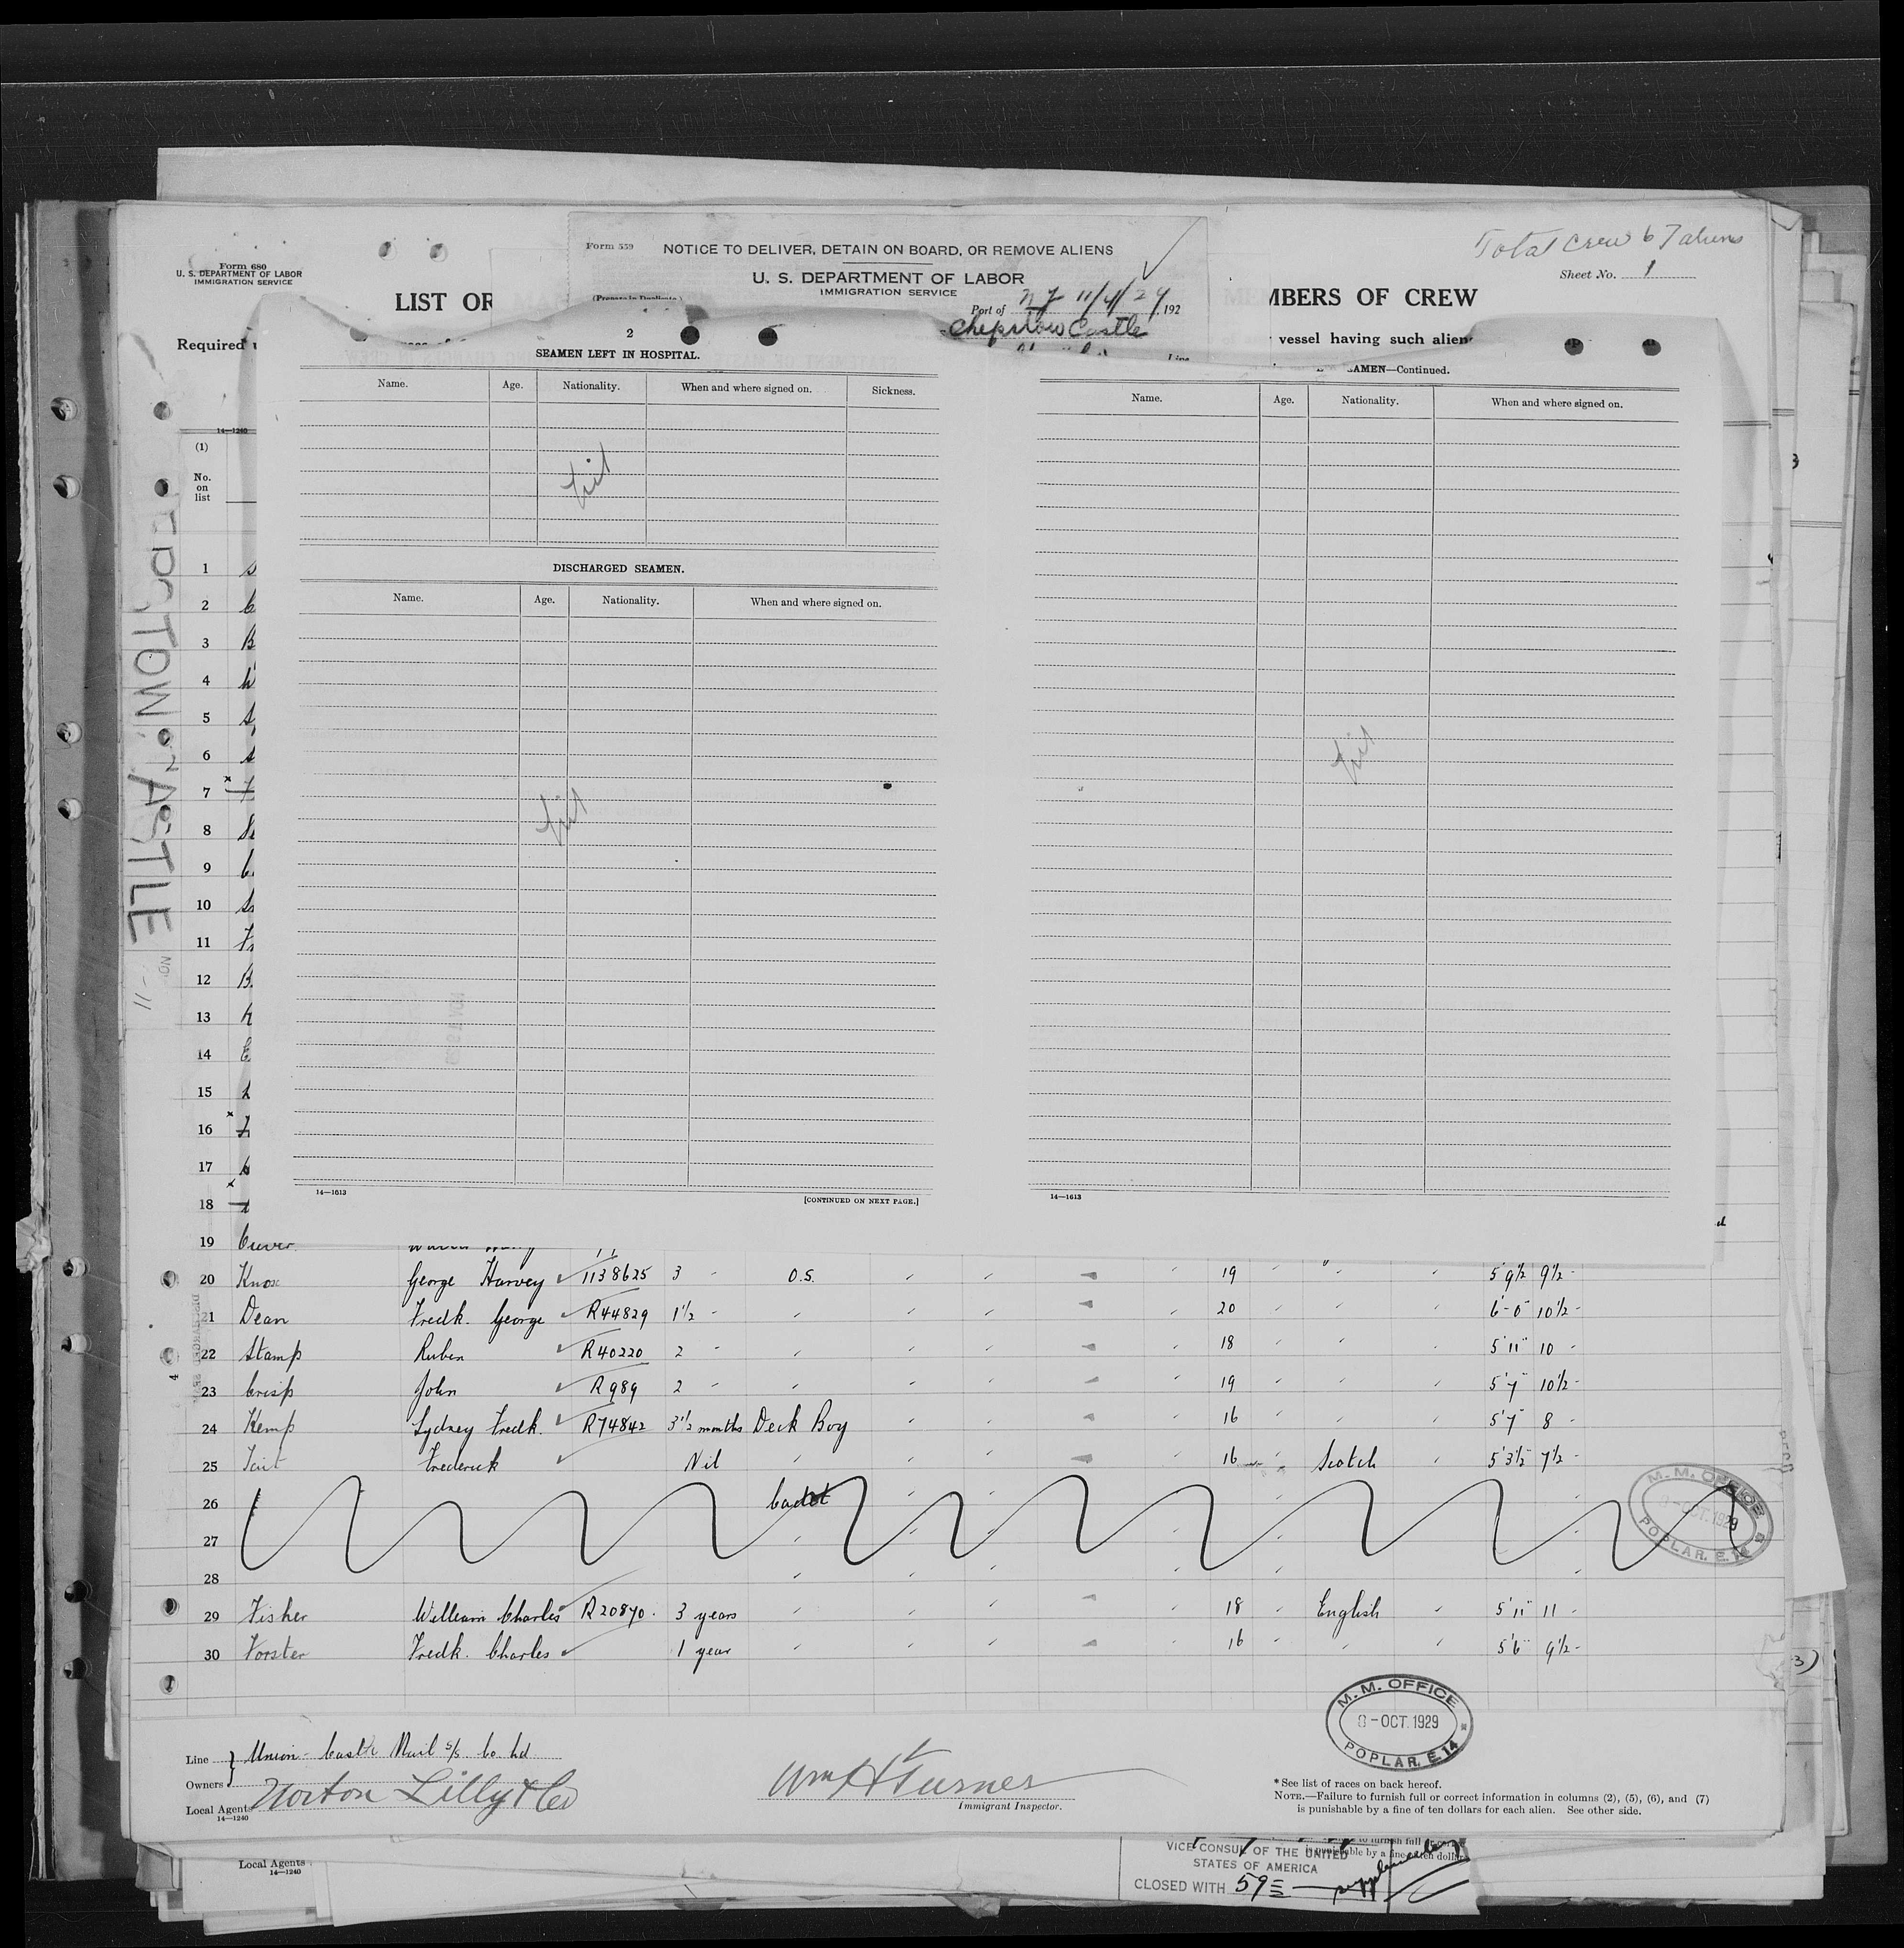 Form 680
U. S. DEPARTMENT OF LABOR
IMMIGRATION SERVICE
LIST OR
Required
Form 559
NOTICE TO DELIVER, DETAIN ON BOARD, OR REMOVE ALIENS
U. S. DEPARTMENT OF LABOR
IMMIGRATION SERVICE
Port of 11/4/29, 192
Chepstow Castle
Total Crew 67 aliens
Sheet No. 1
MBERS OF CREW
vessel having such alien
2
SEAMEN LEFT IN HOSPITAL.
Name. Age. Nationality. When and where signed on. Sickness.
Nil
DISCHARGED SEAMEN.
Name. Age. Nationality. When and where signed on.
Nil
14—1613
[CONTINUED ON NEXT PAGE.]
AMEN—Continued.
Name. Age. Nationality. When and where signed on.
Nil
14—1613
14—1240
(1)
No.
on
list
1
2
3
4
5
6
7
8
9
10
11
12
13
14
15
16
17
18
19
20 Knox George Harvey 1138625 3 O.S. 19 5'9½ 9½
21 Dean Fredk. George R44829 1½ 20 6'-0" 10½
22 Stamp Ruben R40220 2 18 5'11" 10
23 Crisp John R989 2 19 5'7" 10½
24 Kemp Sydney Fredk. R74842 3½ months Deck Boy 16 5'7" 8
25 Tait Frederick Nil 16 Scotch 5'3½" 7½
26 Cadet
27
28
29 Fisher William Charles R20870. 3 years 18 English 5'11" 11
30 Forster Fredk. Charles 1 year 16 5'6" 9½
M. M. OFFICE
8-OCT.1929
POPLAR. E.14
M. M. OFFICE
8-OCT.1929
POPLAR. E.14
Line Union-Castle Mail S/S Co Ld
Owners
Local Agents Norton Lilly & Co
14—1240
Wm H Turner
Immigrant Inspector.
* See list of races on back hereof.
NOTE.—Failure to furnish full or correct information in columns (2), (5), (6), and (7)
is punishable by a fine of ten dollars for each alien. See other side.
Local Agents
14—1240
VICE CONSUL OF THE UNITED
STATES OF AMERICA
CLOSED WITH 59